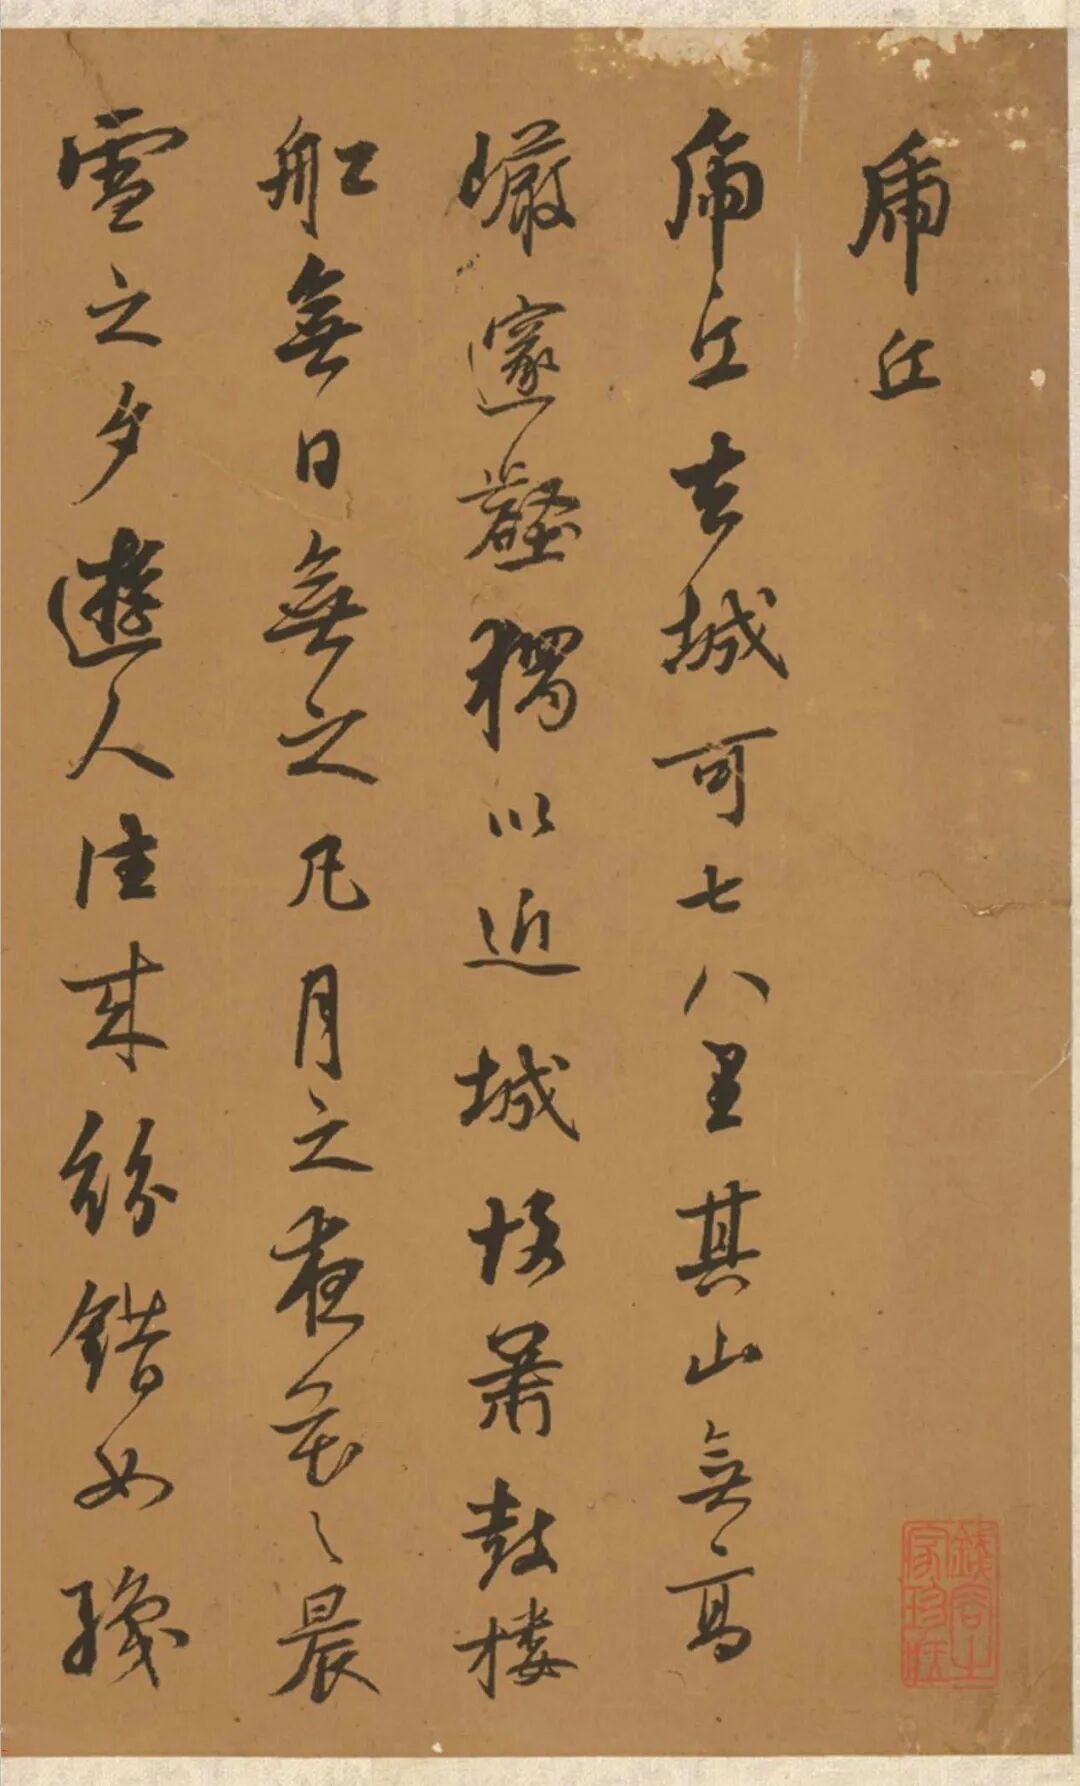 虎丘
虎丘去城可七八里其山無高
巖邃壑獨以近城故簫鼓樓
舡無日無之凡月之夜花之晨
雪之夕遊人往來紛錯如織